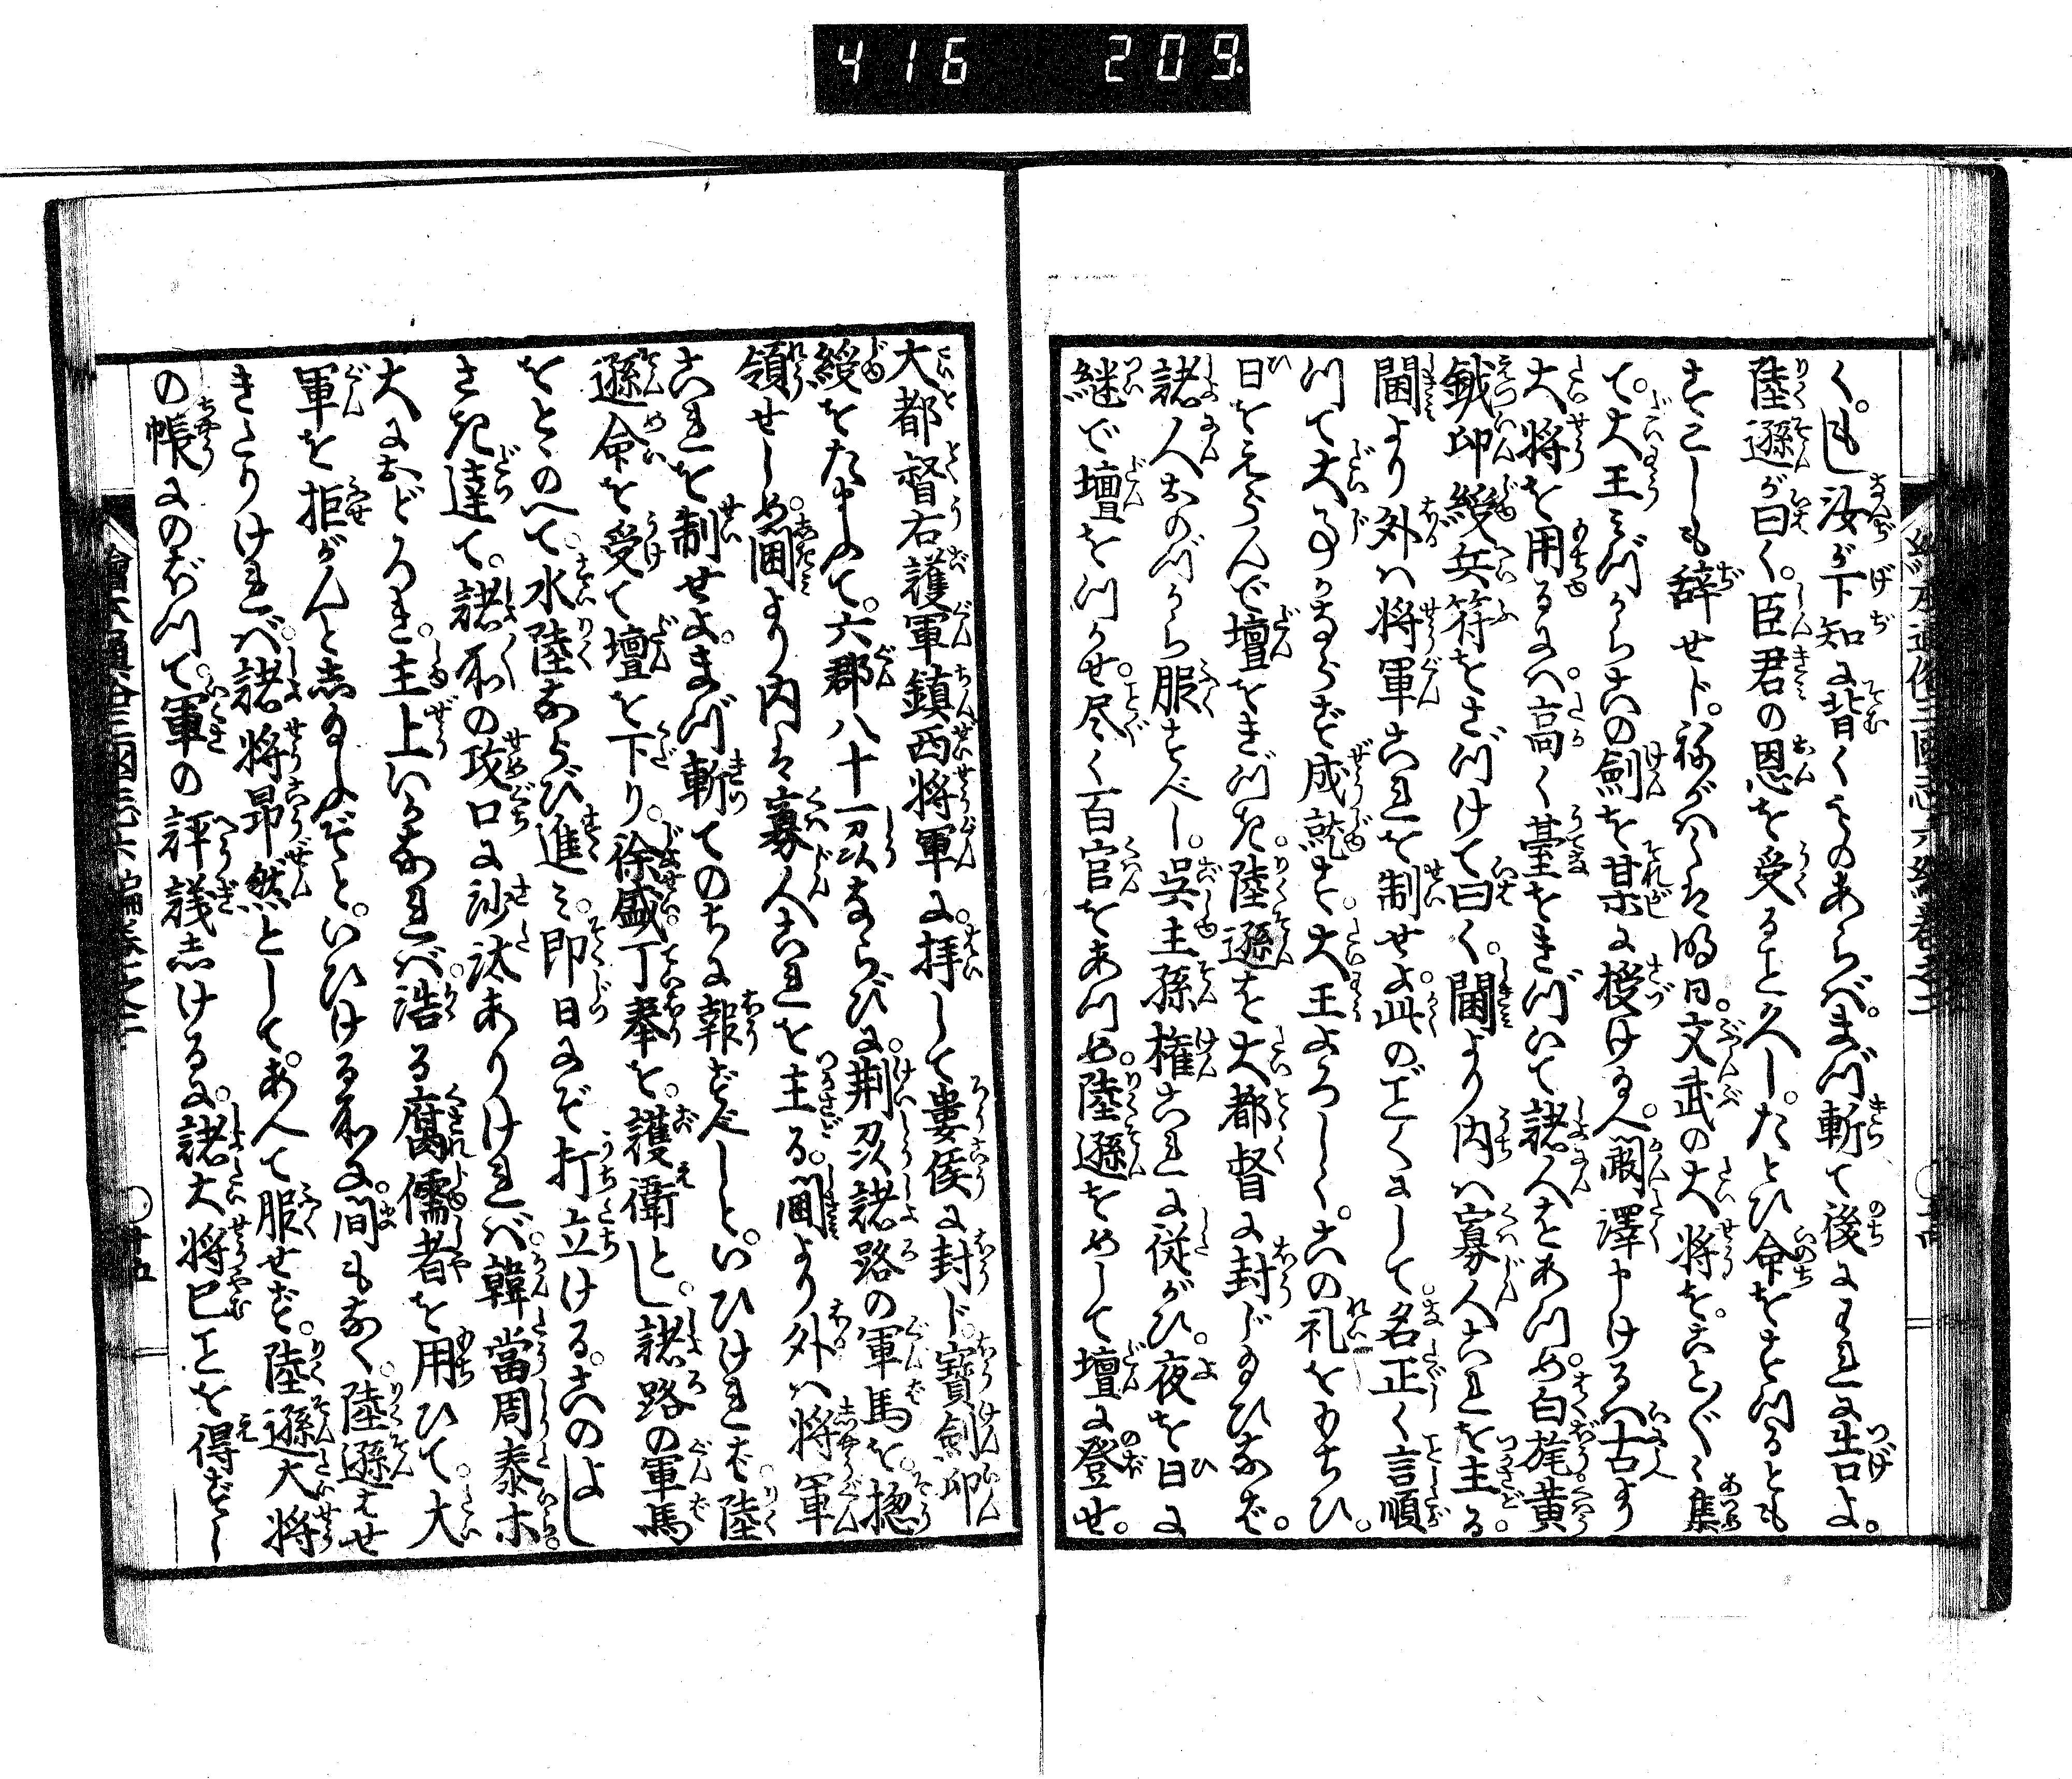 416 209
く。もし汝が下知に背くものあらば。まづ斬て後にわれに告よ。
陸遜が曰く。臣君の恩を受ること久し。たとひ命をすつるとも
すこしも辞せじ。祢がハくは明日。文武の大将を。ことごとく集
て。大王みづからこの剣を某に授け玉へ。闞澤申けるハ古より
大将を用るにハ。高く臺をきづいて諸人をあつめ。白旄黄
鉞印綬兵符をさづけて曰く。閫より内ハ寡人これを主る。
閫より外ハ将軍これを制せよ。此のごとくにして。名正く言順
つて大事かならず成就す。大王よろしく。この礼をもちひ。
日をえらんで壇をきづき。陸遜を大都督に封じ玉ひなば。
諸人おのづから服すべし。呉主孫権これに従がひ。夜を日に
継で壇をつかせ。尽く百官をあつめ。陸遜をめして壇に登せ。
大都督右護軍鎮西将軍に。拝して婁侯に封じ。寳剣印
綬をたまハて。六郡八十一州ならびに。荊州諸路の軍馬を。揔
領せしめ。閫より内は寡人これを主る。閫より外ハ将軍
これを制せよ。まづ斬てのちに報ずべしと。いひければ。陸
遜命を受て壇を下り。徐盛丁奉を。護衛とし。諸路の軍馬
をとゝのへて。水陸ならび進ミ。即日にぞ打立ける。このよし
さき達て。諸所の攻口に沙汰ありければ。韓當周泰ホ。
大におどろき。主上いかなれば。浩る腐儒者を用ひて。大
軍を拒がんとし玉ふぞと。いひける所に。間もなく。陸遜はせ
きたりければ。諸将昂然として。あへて服せず。陸遜大将
の帳にのぼつて。軍の評議しけるに。諸大将已ことを得ずし